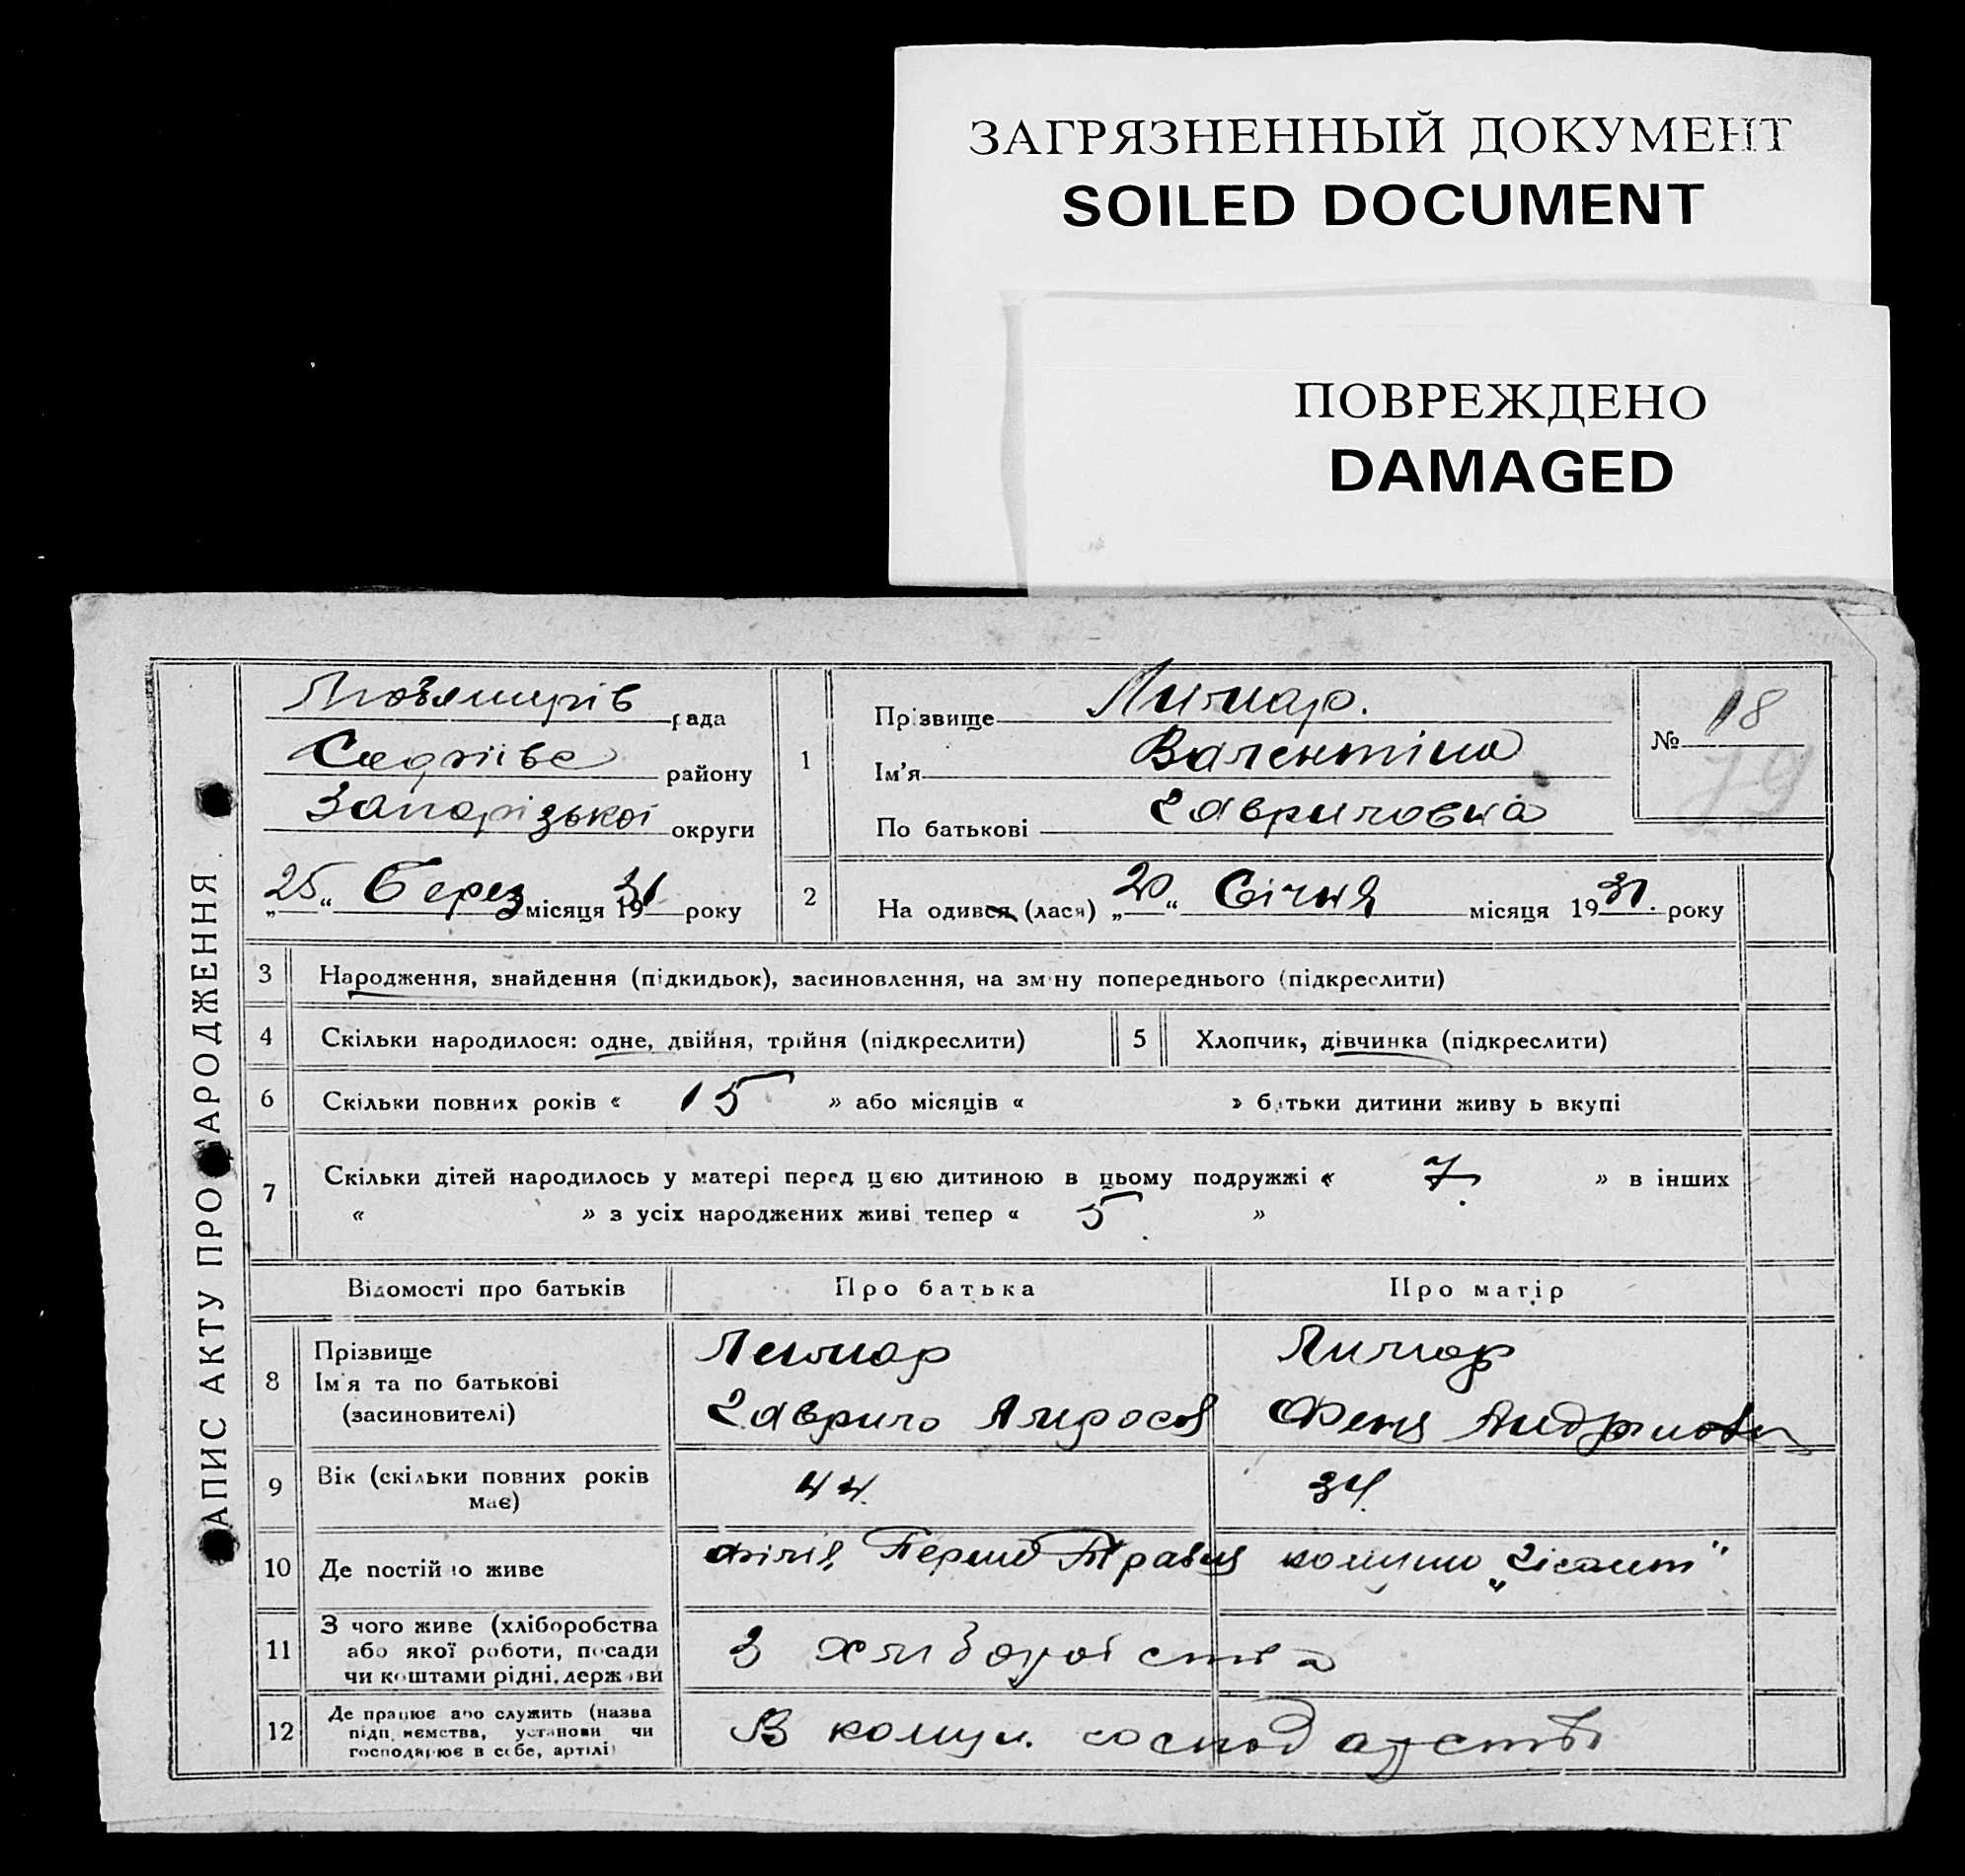 ЗАГРЯЗНЕННЫЙ ДОКУМЕНТ
SOILED DOCUMENT
ПОВРЕЖДЕНО
DAMAGED
АПИС АКТУ ПРО АРОДЖЕННЯ
рада
району
Запорізької округи
„25“ Берез місяця 1931 року
1
Прізвище Лимар.
Ім'я Валентіна
По батькові Гавриловна
№ 18
79
2
На одився (лася) „20“ Січня місяця 1931. року
3 Народження, знайдення (підкидьок), засиновлення, на зміну попереднього (підкреслити)
4 Скільки народилося: одне, двійня, трійня (підкреслити)
5 Хлопчик, дівчинка (підкреслити)
6 Скільки повних років « 15 » або місяців « » батьки дитини живу ь вкупі
7 Скільки дітей народилось у матері перед цією дитиною в цьому подружжі « 7. » в інших
« » з усіх народжених живі тепер « 5 »
Відомості про батьків Про батька Про матір
8 Прізвище
Ім'я та по батькові
(засиновителі)
Лимар
Гаврило
Лимар
Феня
9 Вік (скільки повних років
має)
44.
34.
10 Де постійно живе
філія Перше Травня комуни „Гігант“
11 З чого живе (хліборобства
або якої роботи, посади
чи коштами рідні, держави
З хліборобства
12 Де працює або служить (назва
підприємства, установи чи
господарює в себе, артілі)
В комун. господарстві